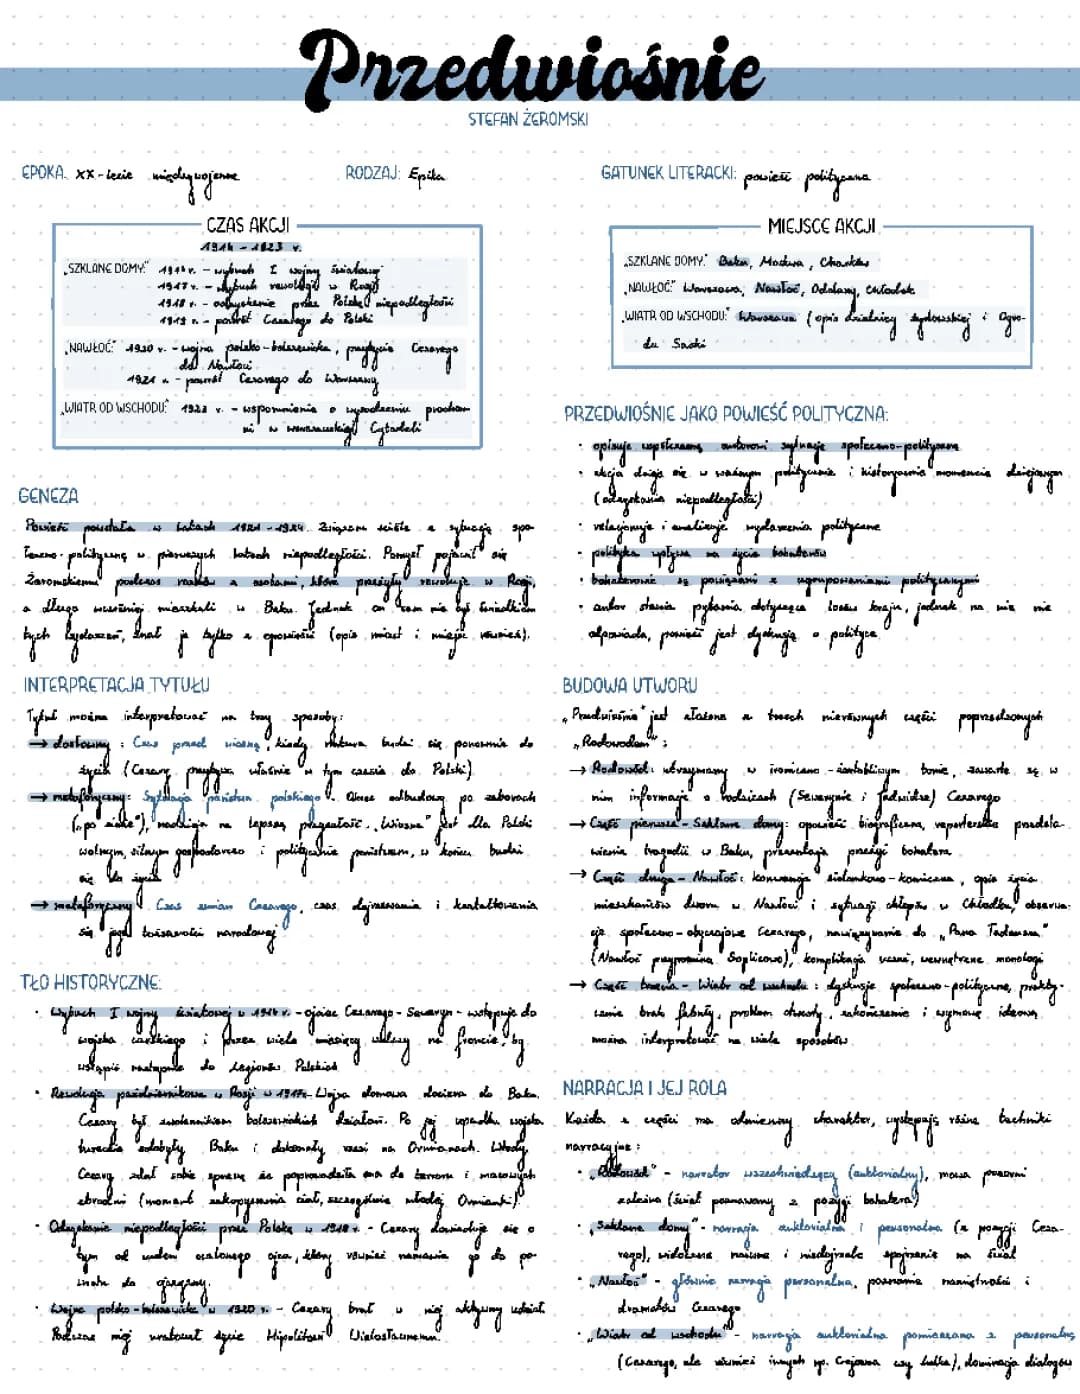 Przedwiośnie
STEFAN ŻEROMSKI
EPOKA: XX-lecie międzywojenne
RODZAJ: Epika
GATUNEK LITERACKI: powieść polityczna
CZAS AKCJI
1914 - 1923 r.
„SZKLANE DOMY:" 1914 r. - wybuch I wojny światowej
1917 r. - wybuch rewolucji w Rosji
1918 r. - odzyskanie przez Polskę niepodległości
1919 r. - powrót Cezarego do Polski
„NAWŁOĆ:" 1920 r. - wojna polsko-bolszewicka, przybycie Cezarego
do Nawłoci
1921 r. - powrót Cezarego do Warszawy
„WIATR OD WSCHODU:" 1923 r. - wspomnienia o wysadzeniu procham
ni w warszawskiej Cytadeli
MIEJSCE AKCJI
„SZKLANE DOMY:" Baku, Moskwa, Charków
„NAWŁOĆ:" Warszawa, Nawłoć, Odolany, Chłodek
„WIATR OD WSCHODU:" Warszawa (opis dzielnicy żydowskiej i Ogro-
du Saski
GENEZA
Powieść powstała w latach 1921 - 1924. Związana ściśle z sytuacją spo-
łeczno-polityczną w pierwszych latach niepodległości. Pomysł pojawił się
Żeromskiemu podczas rozmów z osobami, które przeżyły rewolucję w Rosji,
a długo wcześniej mieszkali w Baku. Jednak on sam nie był świadkiem
tych wydarzeń, znał je tylko z opowieści (opis miast i miejsc również).
INTERPRETACJA TYTUŁU
Tytuł można interpretować na trzy sposoby:
→ dosłowny: Czas przed wiosną, kiedy natura budzi się ponownie do
życia (Cezary przybywa właśnie w tym czasie do Polski)
→ metaforyczny: Sytuacja państwa polskiego. Okres odbudowy po zaborach
(„po zimie"), nadzieja na lepszą przyszłość. „Wiosna" jest dla Polski
wolnym, silnym gospodarczo i politycznie państwem, w końcu budzi
się do życia
→ metaforyczny: Czas zmian Cezarego, czas dojrzewania i kształtowania
się jego tożsamości narodowej
TŁO HISTORYCZNE:
· Wybuch I wojny światowej w 1914 r. - ojciec Cezarego - Seweryn - wstępuje do
wojska carskiego i przez wiele miesięcy walczy na froncie, by
wstąpić następnie do Legionów Polskich
· Rewolucja październikowa w Rosji w 1917r. - Wojna domowa dociera do Baku.
Cezary był zwolennikiem bolszewickich działań. Po jej upadku wojska
tureckie zdobyły Baku i dokonały rzezi na Ormianach. Wtedy
Cezary zdał sobie sprawę że poprowadziła ona do terroru i masowych
zbrodni (moment zakopywania ciał, szczególnie młodej Ormianki).
· Odzyskanie niepodległości przez Polskę w 1918 r. - Cezary dowiaduje się o
tym od cudem ocalonego ojca, który również namawia go do po-
wrotu do ojczyzny.
· Wojna polsko-bolszewicka w 1920 r. - Cezary brał w niej aktywny udział.
Podczas niej uratował życie Hipolitowi Wielosławskiemu.
PRZEDWIOŚNIE JAKO POWIEŚĆ POLITYCZNA:
· opisuje współczesną autorowi sytuację społeczno-polityczną
· akcja dzieje się w ważnym politycznie i historycznie momencie dziejowym
(odzyskania niepodległości)
· relacjonuje i analizuje wydarzenia polityczne
· polityka wpływa na życie bohaterów
· bohaterowie są powiązani z ugrupowaniami politycznymi
· autor stawia pytania dotyczące losów kraju, jednak na nie nie
odpowiada, powieść jest dyskusją o polityce
BUDOWA UTWORU
„Przedwiośnie" jest złożone z trzech nierównych części poprzedzonych
„Rodowodem":
→ Rodowód: utrzymany w ironiczno-żartobliwym tonie, zawarte są w
nim informacje o rodzicach (Sewerynie i Jadwidze) Cezarego
→ Część pierwsza - Szklane domy: opowieść biograficzna, reporterskie przedsta-
wienie tragedii w Baku, prezentacja przeżyć bohatera
→ Część druga - Nawłoć: konwencja sielankowo-komiczna, opis życia
mieszkańców dworu w Nawłoci i sytuacji chłopów w Chłodku, obserwa-
cje społeczno-obyczajowe Cezarego, nawiązywanie do „Pana Tadeusza"
(Nawłoć przypomina Soplicowo), komplikacja uczuć, wewnętrzne monologi
→ Część trzecia - Wiatr od wschodu: dyskusje społeczno-polityczne, prakty-
cznie brak fabuły, problem otwarty, zakończenie i wymowę ideową
można interpretować na wiele sposobów
NARRACJA I JEJ ROLA
Każda z części ma odmienny charakter, występują różne techniki
narracyjne:
· „Rodowód" - narrator wszechwiedzący (auktorialny), mowa pozornie
zależna (świat poznawany z pozycji bohatera)
· „Szklane domy" - narracja auktorialna i personalna (z pozycji Ceza-
rego), widoczne naiwne i niedojrzałe spojrzenie na świat
· „Nawłoć" - głównie narracja personalna, poznanie namiętności i
dramatów Cezarego
· „Wiatr od wschodu" - narracja auktorialna pomieszana z personalną
(Cezarego, ale również innych np. Gajowca czy Lulka), dominacja dialogów